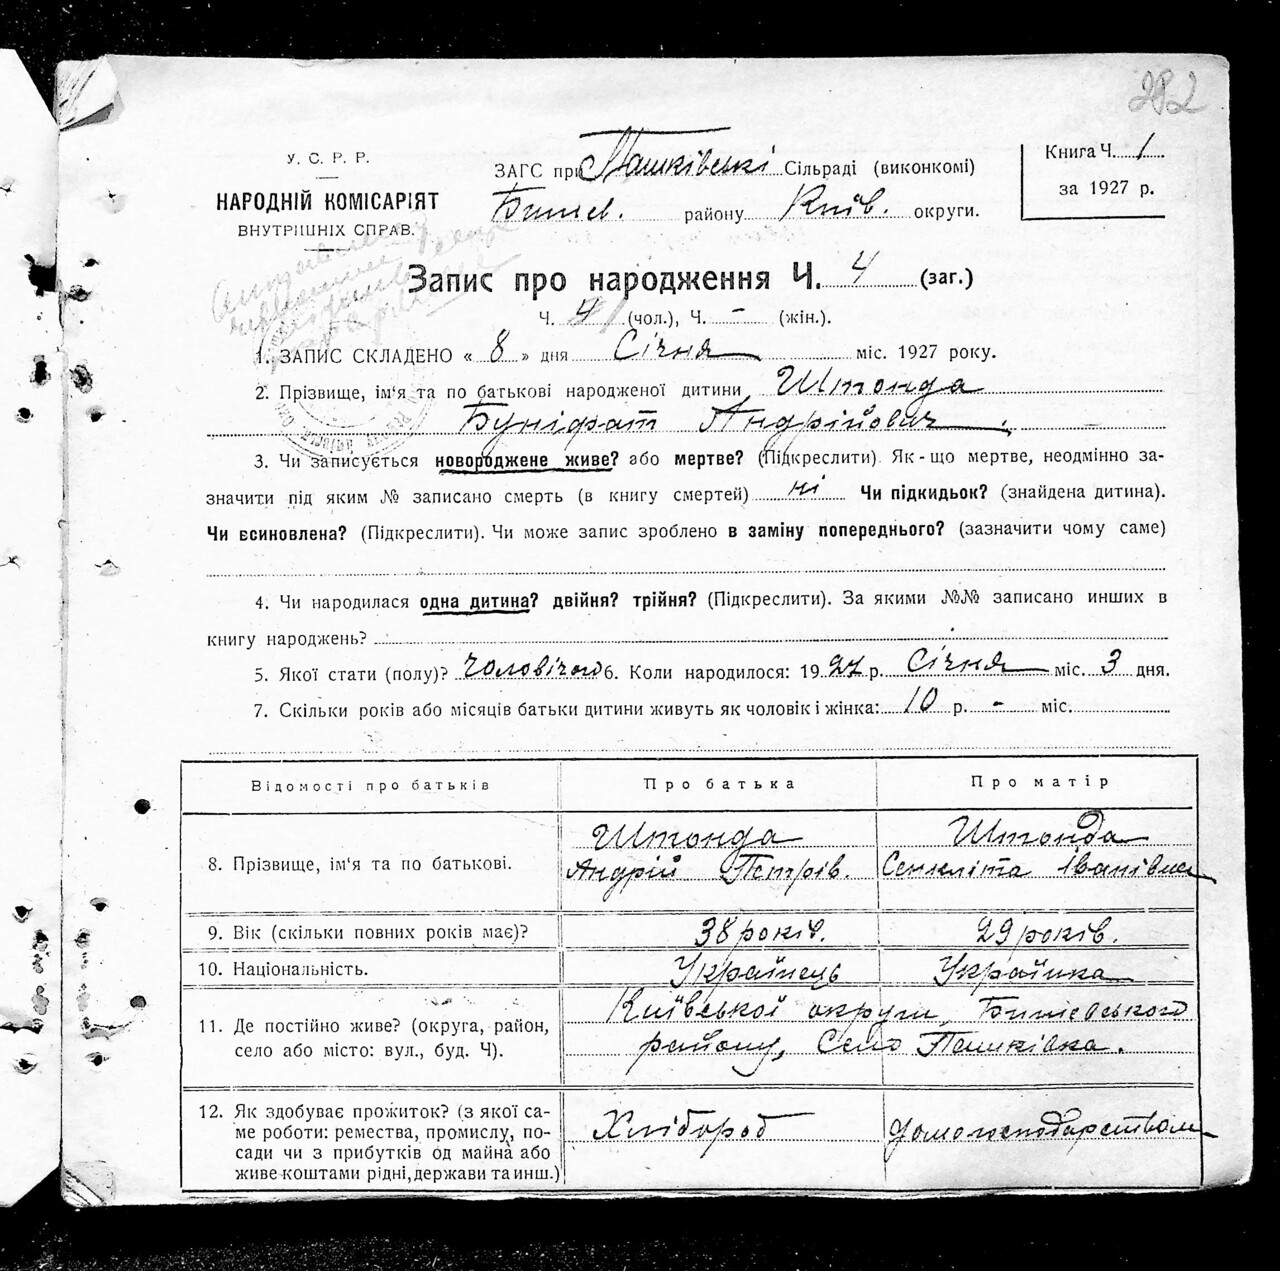 282
У. С. Р. Р.
НАРОДНІЙ КОМІСАРІЯТ
ВНУТРІШНІХ СПРАВ.
ЗАГС при Пашківські Сільраді (виконкомі)
Бишев. району Київ. округи.
Книга Ч. 1
за 1927 р.
Запис про народження Ч. 4 (заг.)
Ч. 4 (чол.), Ч. - (жін.).
1. ЗАПИС СКЛАДЕНО « 8 » дня Січня міс. 1927 року.
2. Прізвище, ім'я та по батькові народженої дитини Штонда
Буніфат Андрійович.
3. Чи записується новороджене живе? або мертве? (Підкреслити). Як-що мертве, неодмінно за-
значити під яким № записано смерть (в книгу смертей) ні Чи підкидьок? (знайдена дитина).
Чи всиновлена? (Підкреслити). Чи може запис зроблено в заміну попереднього? (зазначити чому саме)
4. Чи народилася одна дитина? двійня? трійня? (Підкреслити). За якими №№ записано инших в
книгу народжень?
5. Якої стати (полу)? чоловічої 6. Коли народилося: 1927 р. Січня міс. 3 дня.
7. Скільки років або місяців батьки дитини живуть як чоловік і жінка: 10 р. - міс.
Відомості про батьків Про батька Про матір
Штонда Штонда
8. Прізвище, ім'я та по батькові. Андрій Петрів. Сенкліта Іванівна
9. Вік (скільки повних років має)? 38 років. 29 років.
10. Національність. Українець Українка
11. Де постійно живе? (округа, район, Київської округи, Бишевського
село або місто: вул., буд. Ч). району, Село Пашківка.
12. Як здобуває прожиток? (з якої са- Хлібороб домогосподарством
ме роботи: ремества, промислу, по-
сади чи з прибутків од майна або
живе коштами рідні, держави та инш.)